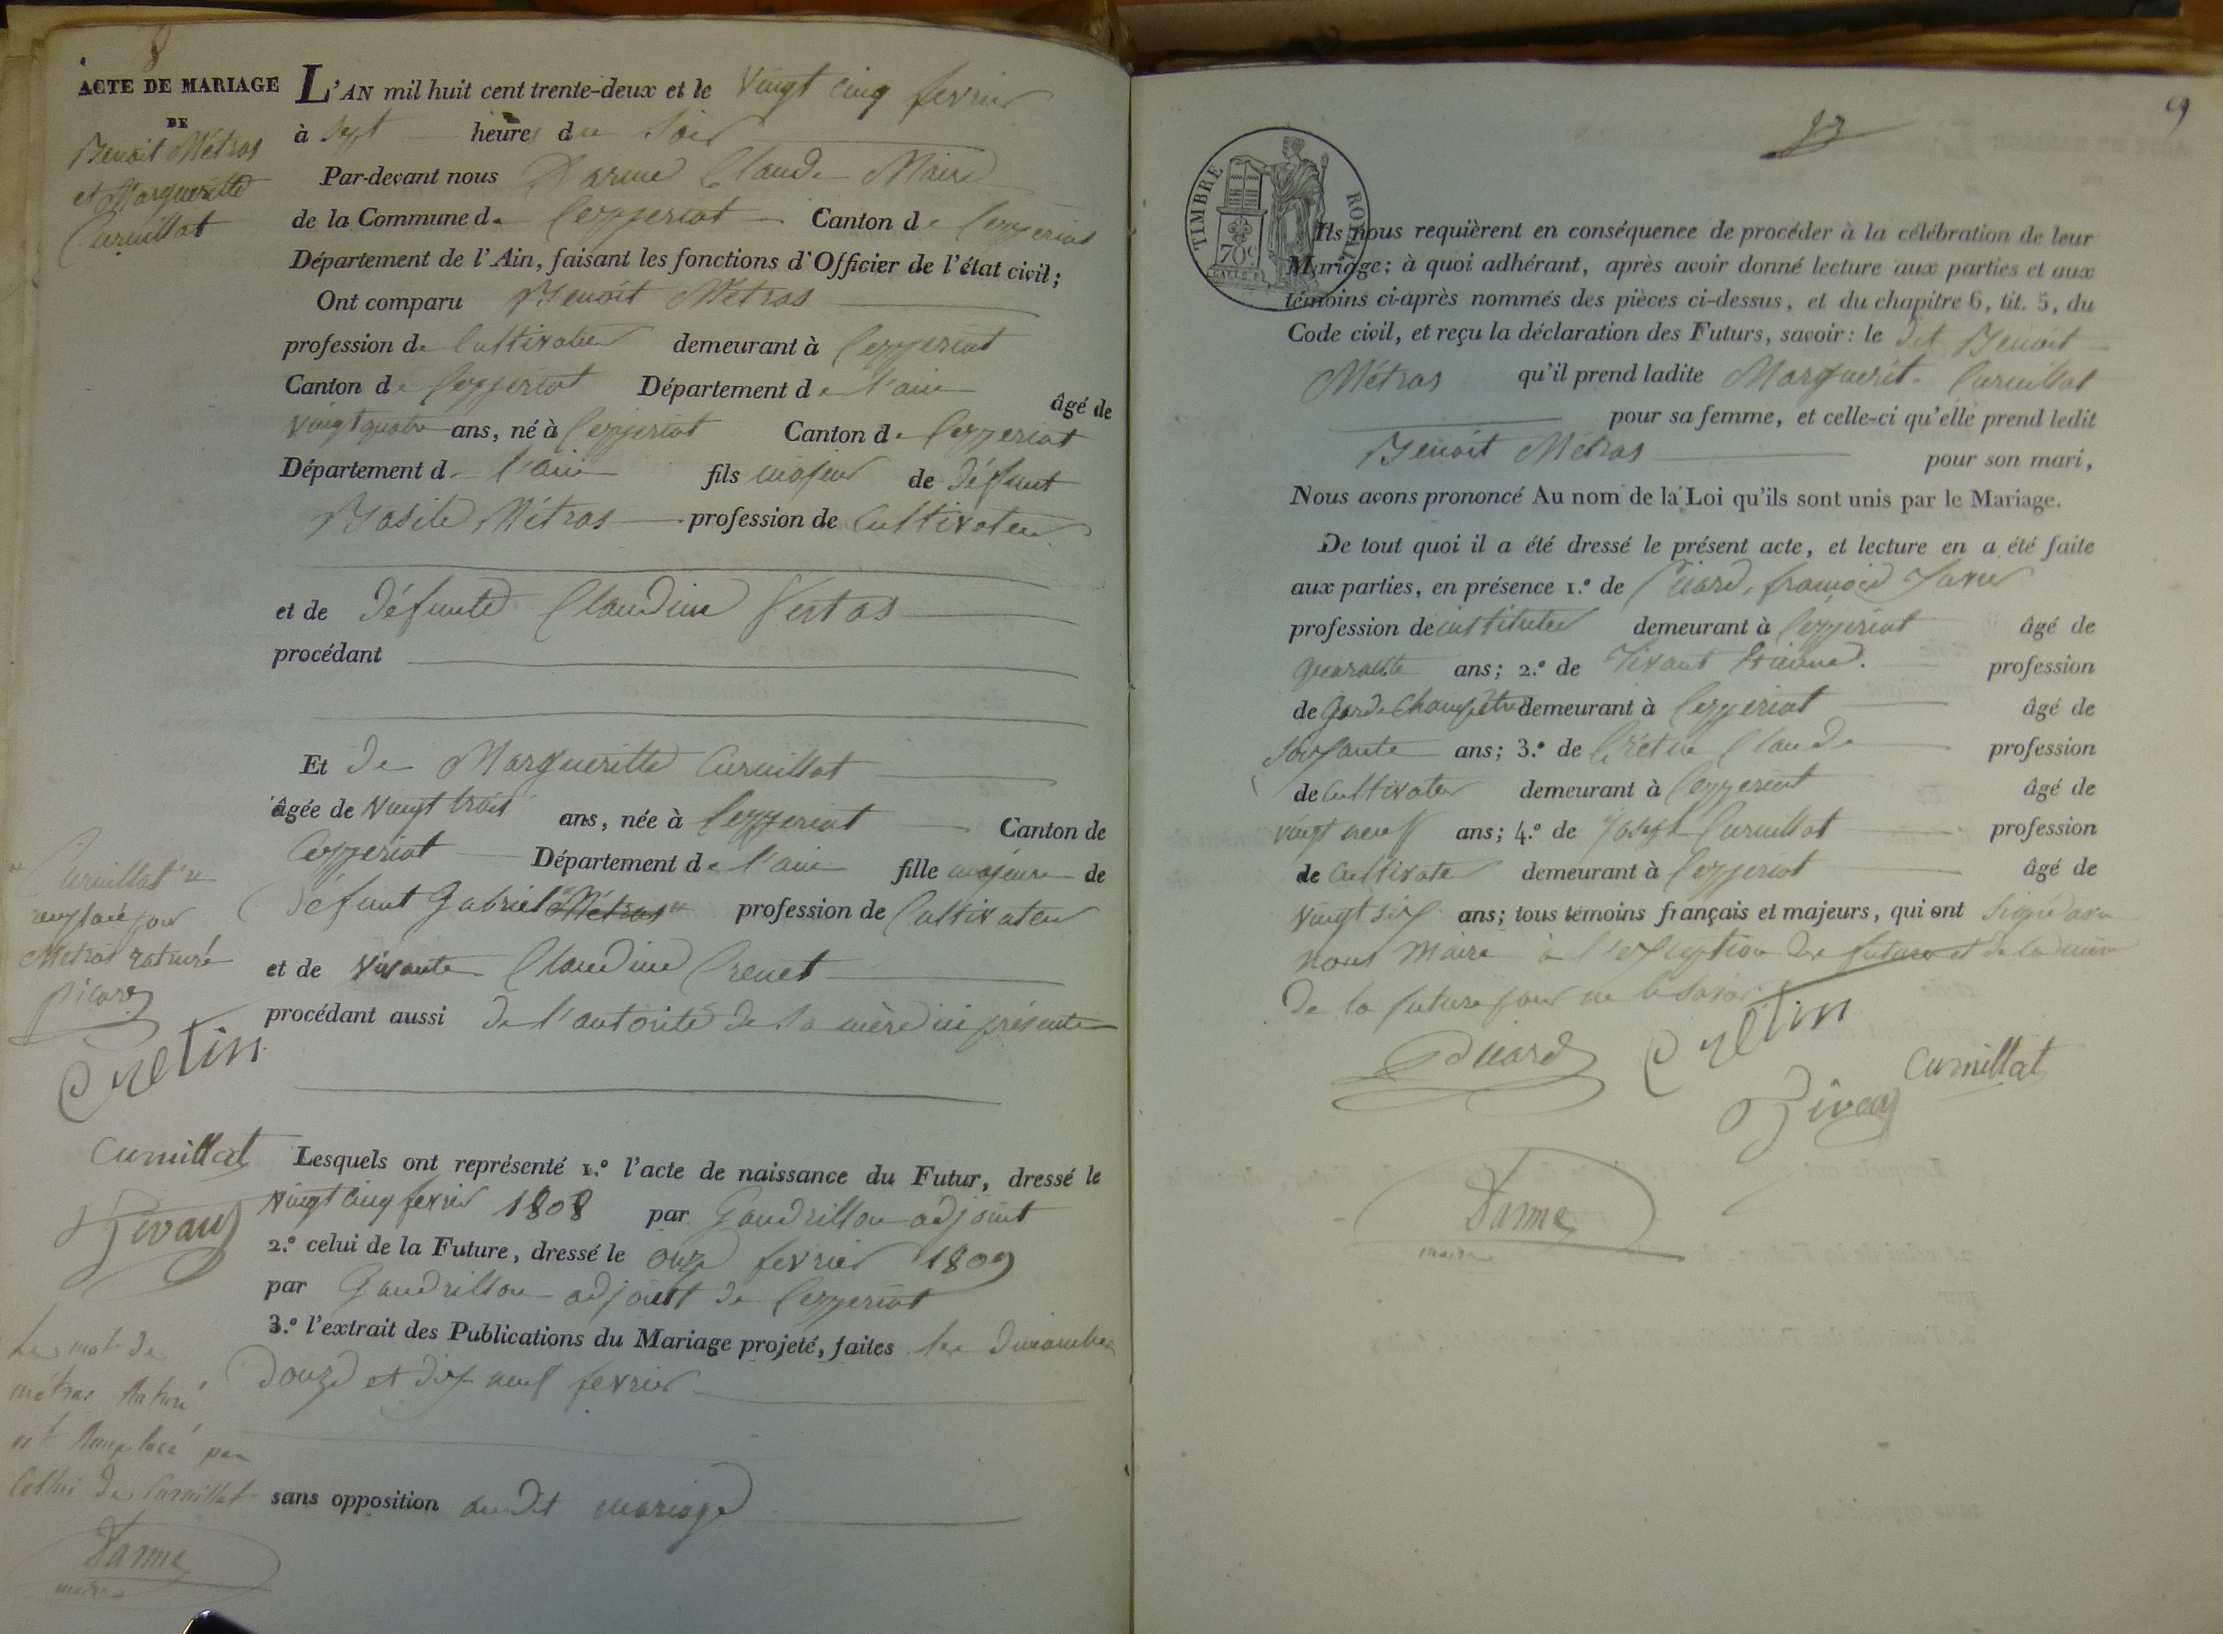 8
ACTE DE MARIAGE
DE
Benoit Métras
et Margueritte
Curnillat
L'AN mil huit cent trente-deux et le vingt cinq fevrier
à sept heures du soir
Par-devant nous Darme Claude Maire
de la Commune de Ceyzeriat Canton de Ceyzeriat
Département de l'Ain, faisant les fonctions d'Officier de l'état civil;
Ont comparu Benoit Métras
profession de Cultivateur demeurant à Ceyzeriat
Canton de Ceyzeriat Département de l'ain âgé de
vingt quatre ans, né à Ceyzeriat Canton de Ceyzeriat
Département de l'ain fils majeur de défunt
Basile Métras profession de Cultivateur
et de défunte Claudine Vertas
procédant
Et de Margueritte Curnillat
âgée de vingt trois ans, née à Ceyzeriat Canton de
Ceyzeriat Département de l'ain fille majeure de
défunt Gabriel Métras profession de Cultivateur
et de vivante Claudine Crenet
procédant aussi de l'autorité de sa mère ici présente
Lesquels ont représenté 1.º l'acte de naissance du Futur, dressé le
vingt cinq fevrier 1808 par Gaudrillon adjoint
2.º celui de la Future, dressé le onze fevrier 1809
par Gaudrillon adjoint de Ceyzeriat
3.º l'extrait des Publications du Mariage projeté, faites les dimanches
douze et dix neuf fevrier
sans opposition audit mariage
Curnillat
remplacé par
Métras raturé
Picard
Cretin
Curnillat
Rivaux
Le mot de
métras raturé
est remplacé par
celui de Curnillat
Darme
maire
9
TIMBRE ROYAL
70c
Ils nous requièrent en conséquence de procéder à la célébration de leur
Mariage; à quoi adhérant, après avoir donné lecture aux parties et aux
témoins ci-après nommés des pièces ci-dessus, et du chapitre 6, tit. 5, du
Code civil, et reçu la déclaration des Futurs, savoir: le dit Benoit
Métras qu'il prend ladite Marguerite Curnillat
pour sa femme, et celle-ci qu'elle prend ledit
Benoit Métras pour son mari,
Nous avons prononcé Au nom de la Loi qu'ils sont unis par le Mariage.
De tout quoi il a été dressé le présent acte, et lecture en a été faite
aux parties, en présence 1.º de Picard françois Xavier
profession de instituteur demeurant à Ceyzeriat âgé de
quarante ans; 2.º de Etienne profession
de Garde Champêtre demeurant à Ceyzeriat âgé de
soixante ans; 3.º de Crétin Claude profession
de Cultivateur demeurant à Ceyzeriat âgé de
vingt neuf ans; 4.º de Joseph Curnillat profession
de Cultivateur demeurant à Ceyzeriat âgé de
vingt six ans; tous témoins français et majeurs, qui ont signé avec
nous Maire à l'exception des futurs et de la mère
de la future pour ne le savoir
Picard Cretin
Curnillat
Rivaux
Darme
maire